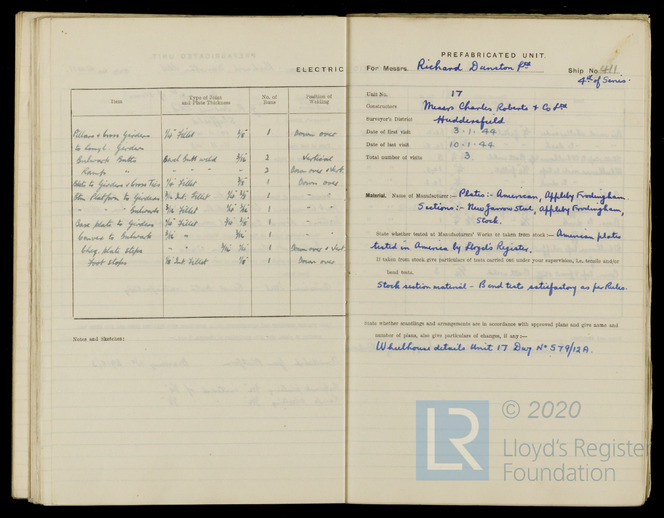 ELECTRIC
Item Type of Joint and Plate Thickness No. of Runs Position of Welding
Pillars & Cross Girders 3/16 1 Down over
to Longl. Girders
Bulwark Butts Butt weld 3/16 2 Vertical
Ramps " 2 Down over & Vert.
Girders & Cross Ties Fillet 1 Down over
Platform to Girders Int. Fillet 1 " "
" " Bulwarks Fillet 1 " "
Base plate to Girders Fillet 1 " "
to Bulwark " 1 " "
Cheq. plate steps " " 1 Down over & Vert.
Foot stops Int. Fillet 1 Down over
Notes and Sketches:
PREFABRICATED UNIT.
For Messrs. Richard Dunston Ltd Ship No. 411
4th of Series.
Unit No. 17
Constructors Messrs Charles Roberts & Co Ltd
Surveyor's District Huddersfield
Date of first visit 3-1-44
Date of last visit 10-1-44
Total number of visits 3
Material. Name of Manufacturer:— Plates:- American, Appleby Frodingham.
Sections:- New Jarrow Steel, Appleby Frodingham,
Stock.
State whether tested at Manufacturers' Works or taken from stock:— American plates
tested in America by Lloyd's Register.
If taken from stock give particulars of tests carried out under your supervision, i.e. tensile and/or
bend tests.
Stock section material - Bend tests satisfactory as per Rules.
State whether scantlings and arrangements are in accordance with approved plans and give name and
number of plans, also give particulars of changes, if any:—
Wheelhouse details Unit 17 Dwg No 579/12A.
© 2020
LR
Lloyd's Register
Foundation